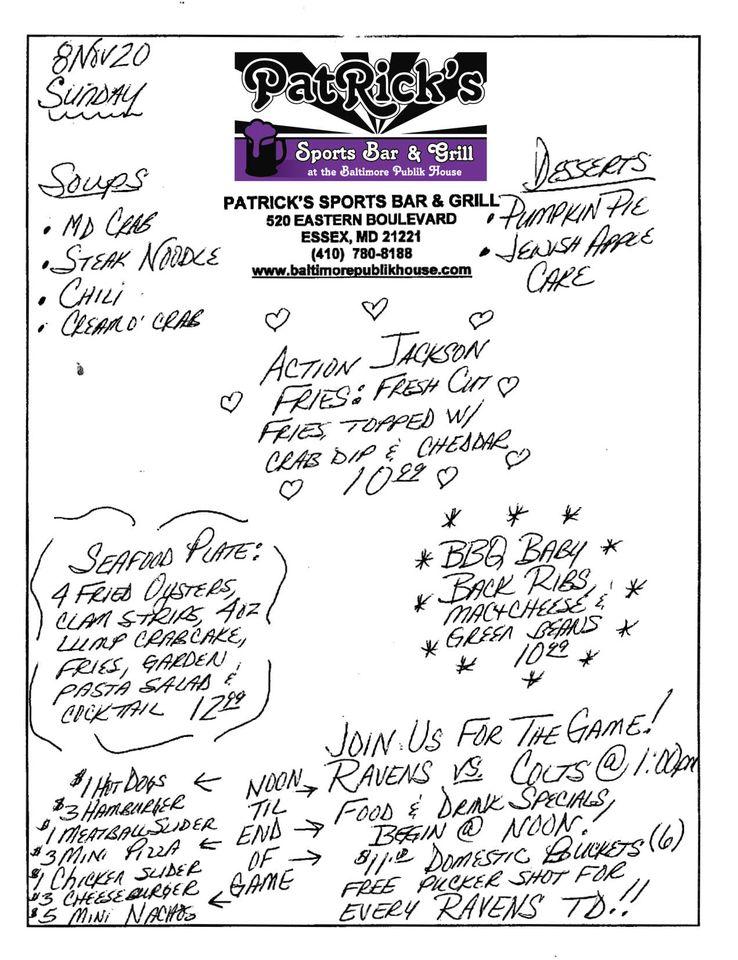 8 Nov 20
SUNDAY
PatRick's
Sports Bar & Grill
at the Baltimore Publik House
PATRICK'S SPORTS BAR & GRILL
520 EASTERN BOULEVARD
ESSEX, MD 21221
(410) 780-8188
www.baltimorepublikhouse.com
SOUPS
• MD CRAB
• STEAK NOODLE
• CHILI
• CREAM O' CRAB
DESSERTS
• PUMPKIN PIE
• JEWISH APPLE
CAKE
ACTION JACKSON
FRIES: FRESH CUT
FRIES, TOPPED W/
CRAB DIP & CHEDDAR
10.99
SEAFOOD PLATE:
4 FRIED OYSTERS,
CLAM STRIPS, 4OZ
LUMP CRABCAKE,
FRIES, GARDEN
PASTA SALAD &
COCKTAIL 12.99
BBQ BABY
BACK RIBS,
MAC+CHEESE &
GREEN BEANS
10.99
$1 HOT DOGS
$3 HAMBURGER
$1 MEATBALL SLIDER
$3 MINI PIZZA
$1 CHICKEN SLIDER
$3 CHEESEBURGER
$5 MINI NACHOS
NOON
TIL
END
OF
GAME
JOIN US FOR THE GAME!
RAVENS VS. COLTS @ 1:00pm
FOOD & DRINK SPECIALS,
BEGIN @ NOON!
$11.00 DOMESTIC BUCKETS (6)
FREE PUCKER SHOT FOR
EVERY RAVENS TD!!